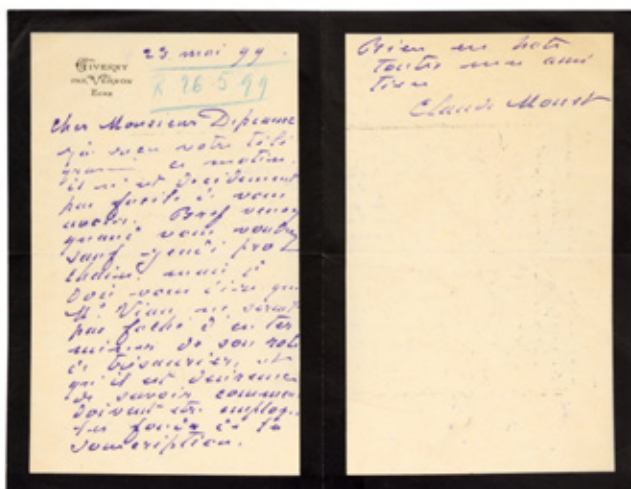 GIVERNY
PAR VERNON
EURE
23 mai 99.
R 26.5.99
Cher Monsieur Depeaux
j'ai reçu votre télé
gramme ce matin.
il n'est décidement
pas facile à vous
avoir. Bref venez
quand vous voudrez
sauf jeudi pro
chain. mais je
dois vous dire que
Mr Viau ne serait
pas faché d'en ter
miner de son role
de trésorier, et
qu'il est desireux
de savoir comment
doivent etre employés
les fonds de la
souscription.
Bien en hate
toutes mes ami
tiés
Claude Monet